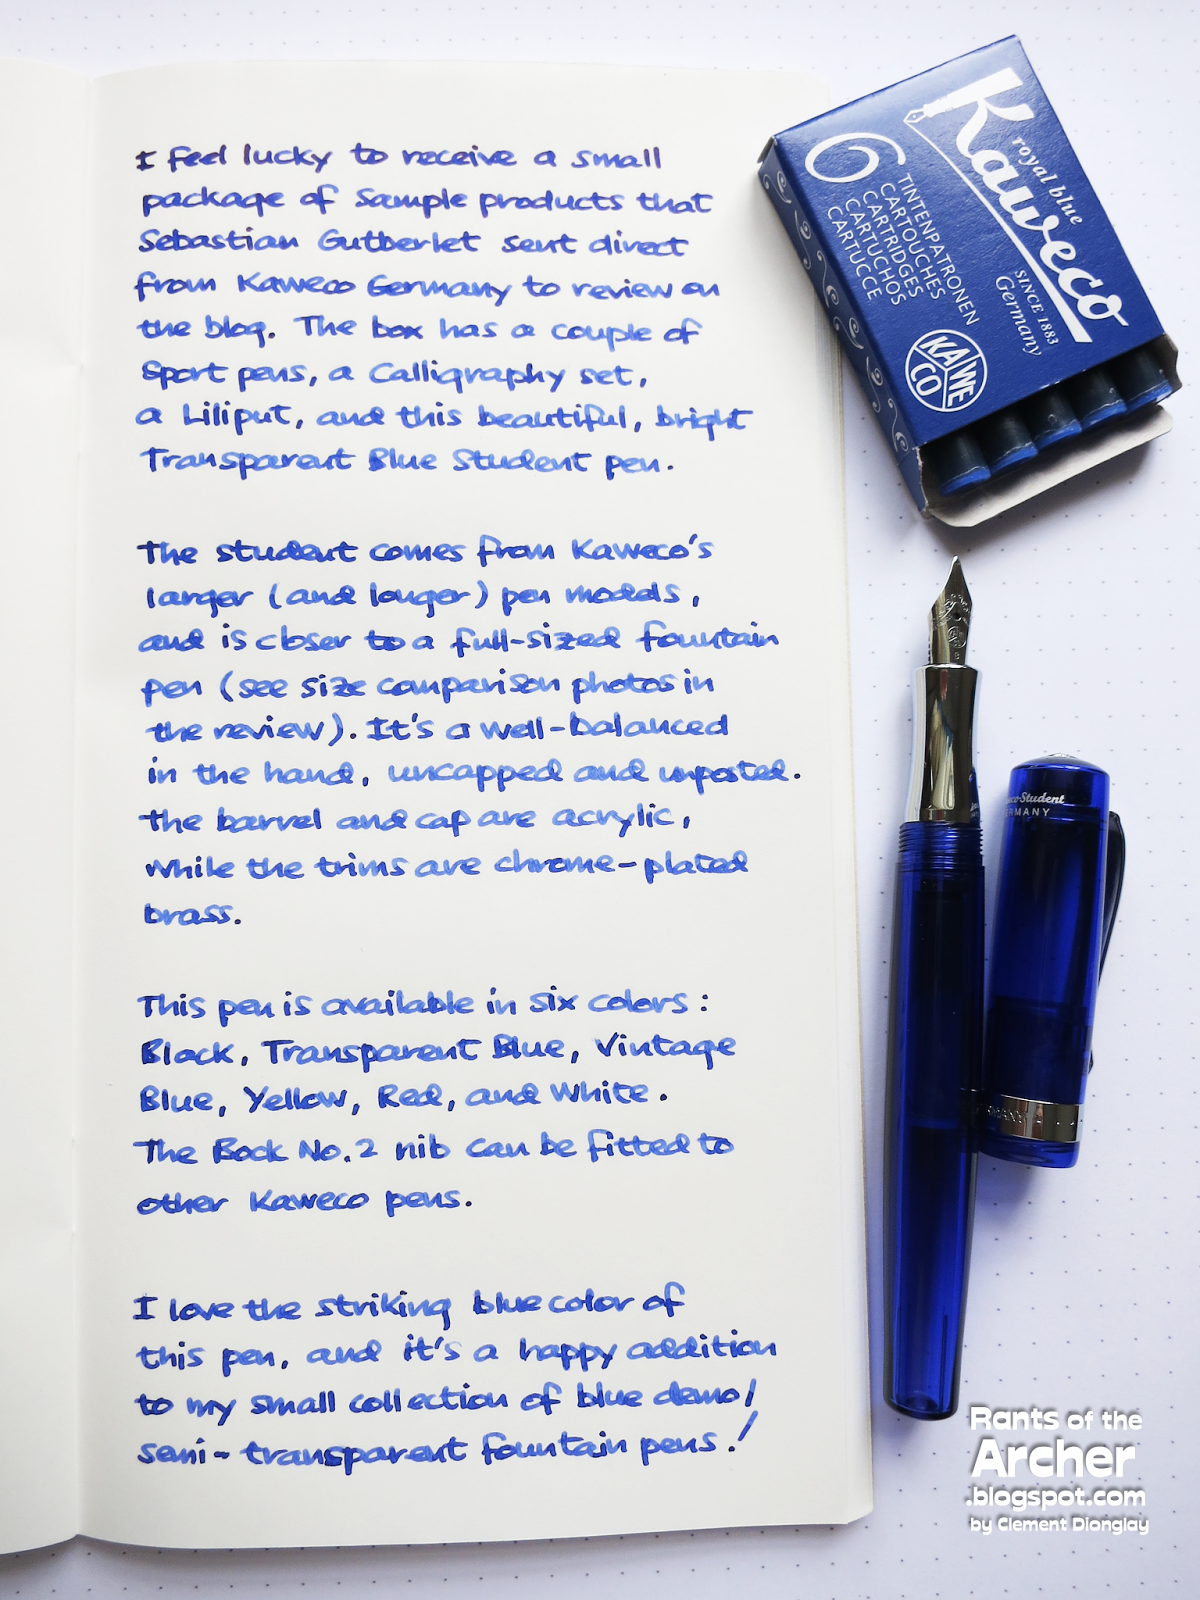 I feel lucky to receive a small
package of sample products that
Sebastian Gutberlet sent direct
from Kaweco Germany to review on
the blog. The box has a couple of
Sport pens, a Calligraphy set,
a Liliput, and this beautiful, bright
Transparent Blue Student pen.
The student comes from Kaweco's
larger (and longer) pen models,
and is closer to a full-sized fountain
pen (see size comparison photos in
the review). It's a well-balanced
in the hand, uncapped and unposted.
The barrel and cap are acrylic,
while the trims are chrome-plated
brass.
This pen is available in six colors:
Black, Transparent Blue, Vintage
Blue, Yellow, Red, and White.
The Bock No.2 nib can be fitted to
other Kaweco pens.
I love the striking blue color of
this pen, and it's a happy addition
to my small collection of blue demo/
semi-transparent fountain pens!
Kaweco
royal blue
SINCE 1883
Germany
6
TINTENPATRONEN
CARTOUCHES
CARTRIDGES
CARTUCHOS
CARTUCCE
KA WE CO
Student
GERMANY
Rants of the
Archer
.blogspot.com
by Clement Dionglay